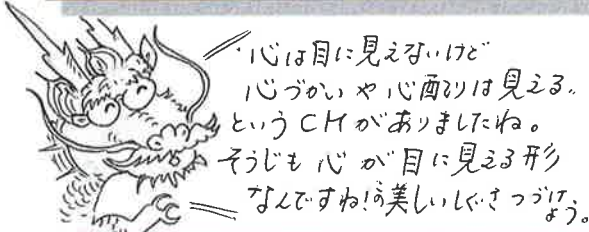 "心は目に見えないけど
心づかいや心配りは見える"
というCMがありましたね。
そうじも心が目に見える形
なんですね!美しいしぐさつづけ
よう。